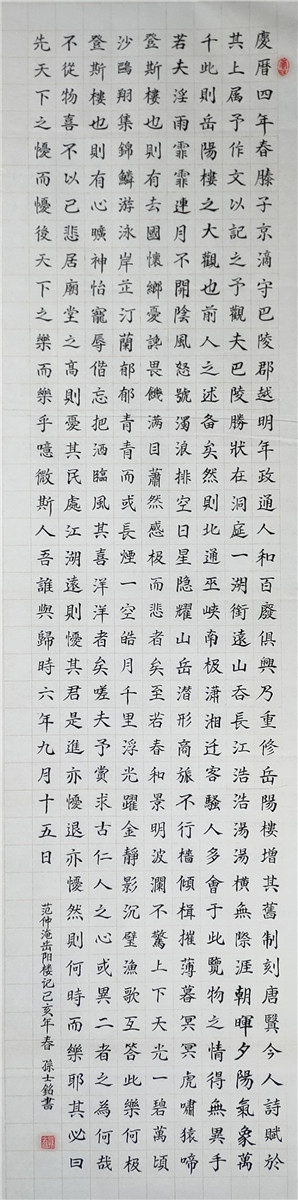 慶曆四年春滕子京謫守巴陵郡越明年政通人和百廢俱興乃重修岳陽樓增其舊制刻唐賢今人詩賦於
其上属予作文以記之予觀夫巴陵勝狀在洞庭一湖銜遠山吞長江浩浩湯湯橫無際涯朝暉夕陽氣象萬
千此則岳陽樓之大觀也前人之述备矣然則北通巫峽南极瀟湘迁客騷人多會于此覽物之情得無異乎
若夫淫雨霏霏連月不開陰風怒號濁浪排空日星隐耀山岳潜形商旅不行檣傾楫摧薄暮冥冥虎嘯猿啼
登斯樓也則有去國懷鄉憂讒畏饑滿目蕭然感极而悲者矣至若春和景明波瀾不驚上下天光一碧萬頃
沙鷗翔集錦鱗游泳岸芷汀蘭郁郁青青而或長煙一空皓月千里浮光躍金靜影沉璧漁歌互答此樂何极
登斯樓也則有心曠神怡寵辱偕忘把酒臨風其喜洋洋者矣嗟夫予嘗求古仁人之心或異二者之為何哉
不從物喜不以己悲居廟堂之高則憂其民處江湖遠則懮其君是進亦懮退亦懮然則何時而樂耶其必曰
先天下之懮而懮後天下之樂而樂乎噫微斯人吾誰與歸時六年九月十五日
范仲淹岳阳楼记己亥年春 孫士銘書